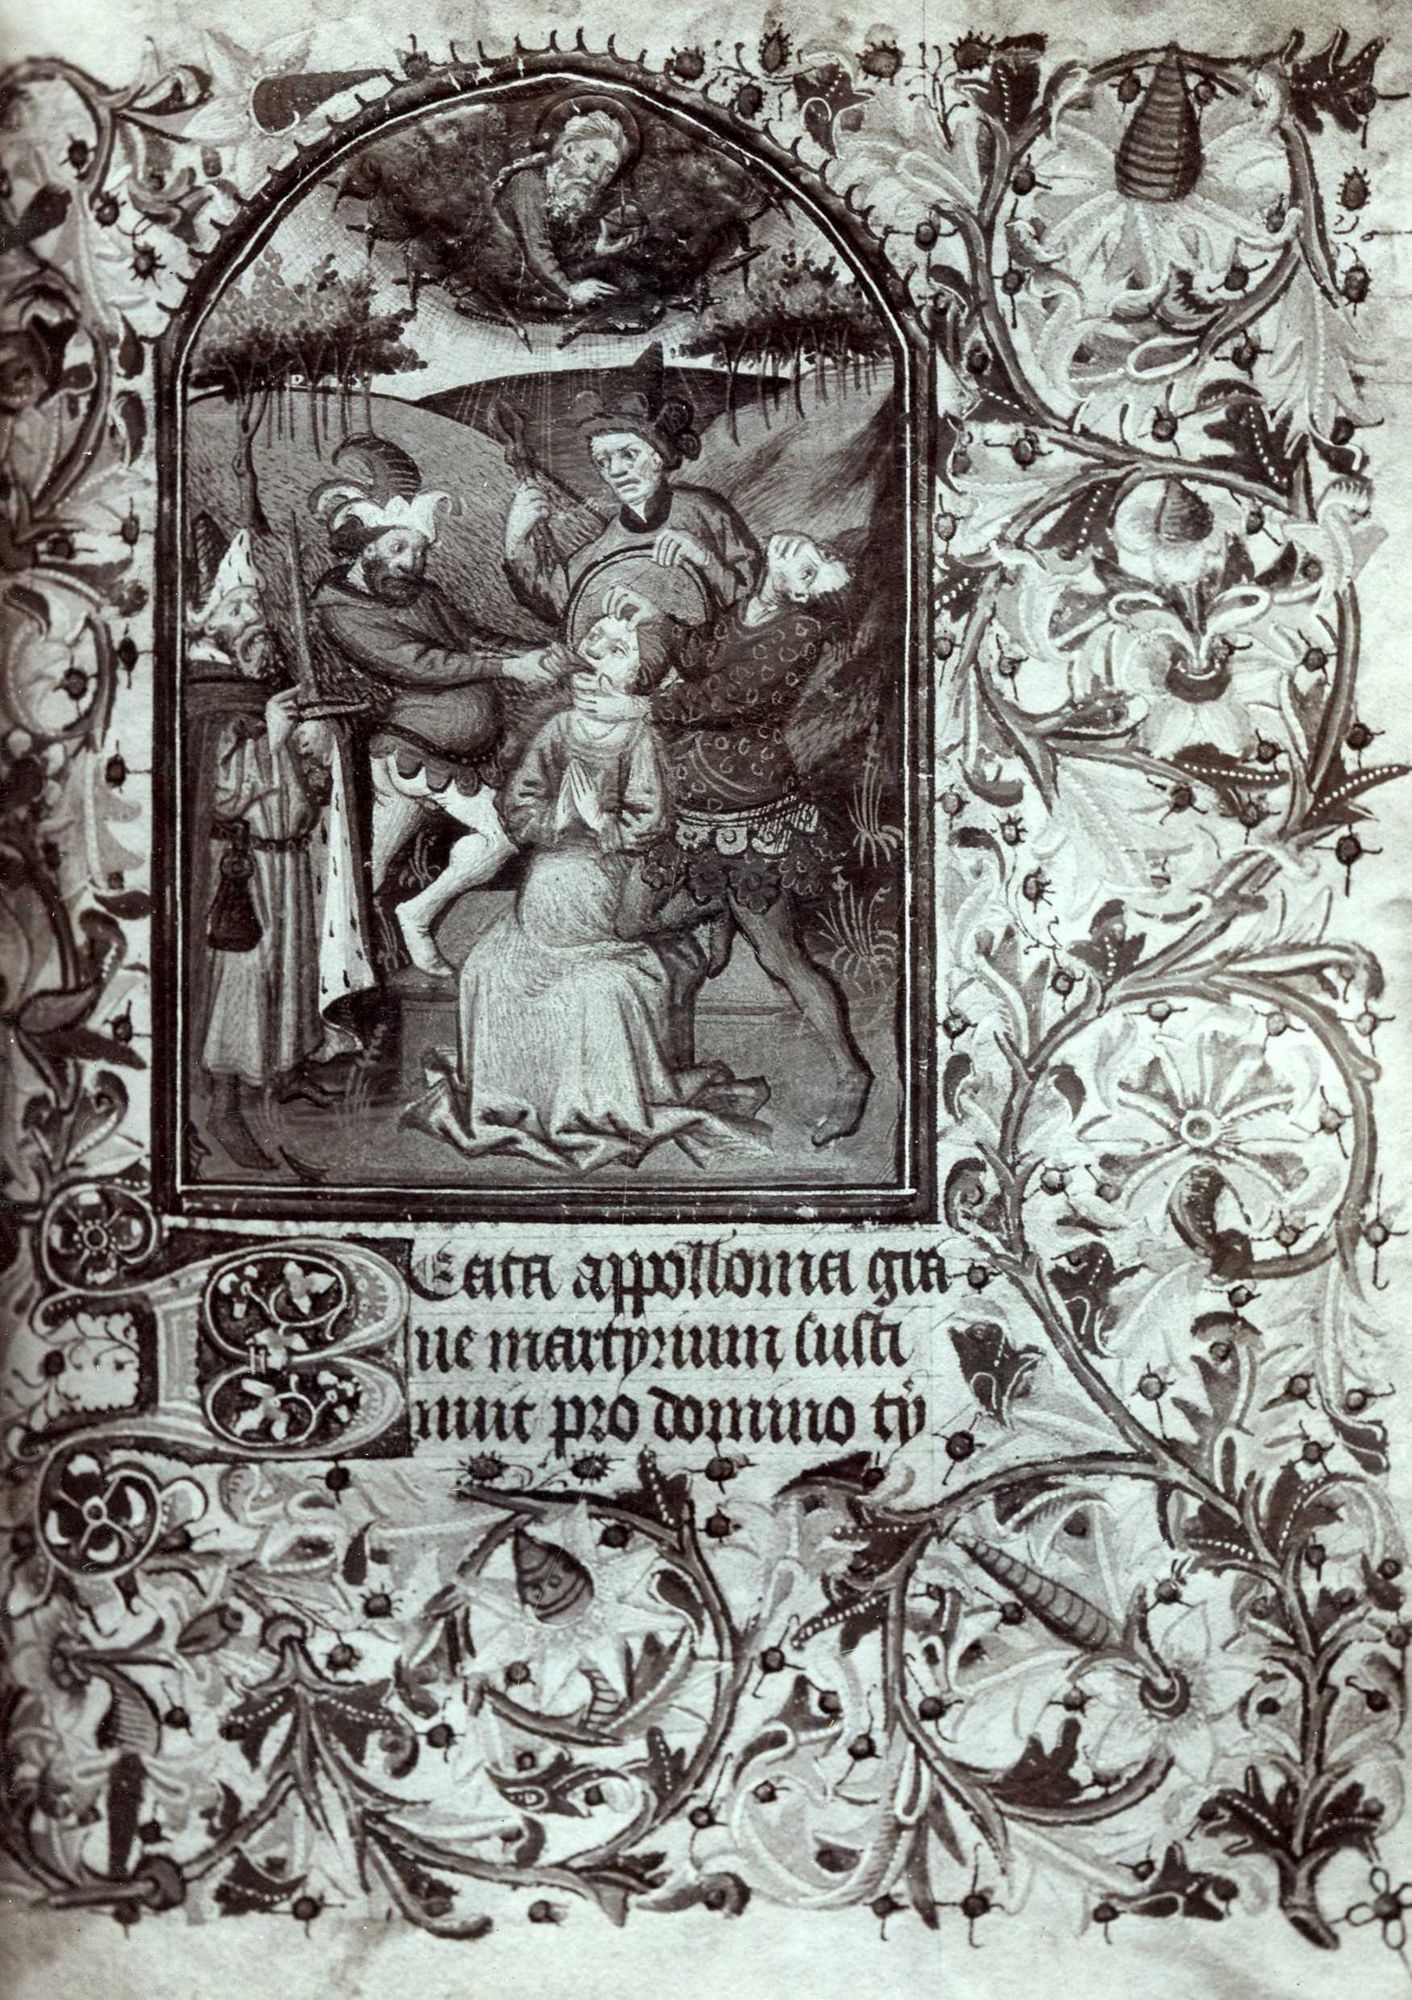 Beata appollonia gra
ue martyrium susti
nuit pro domino ty